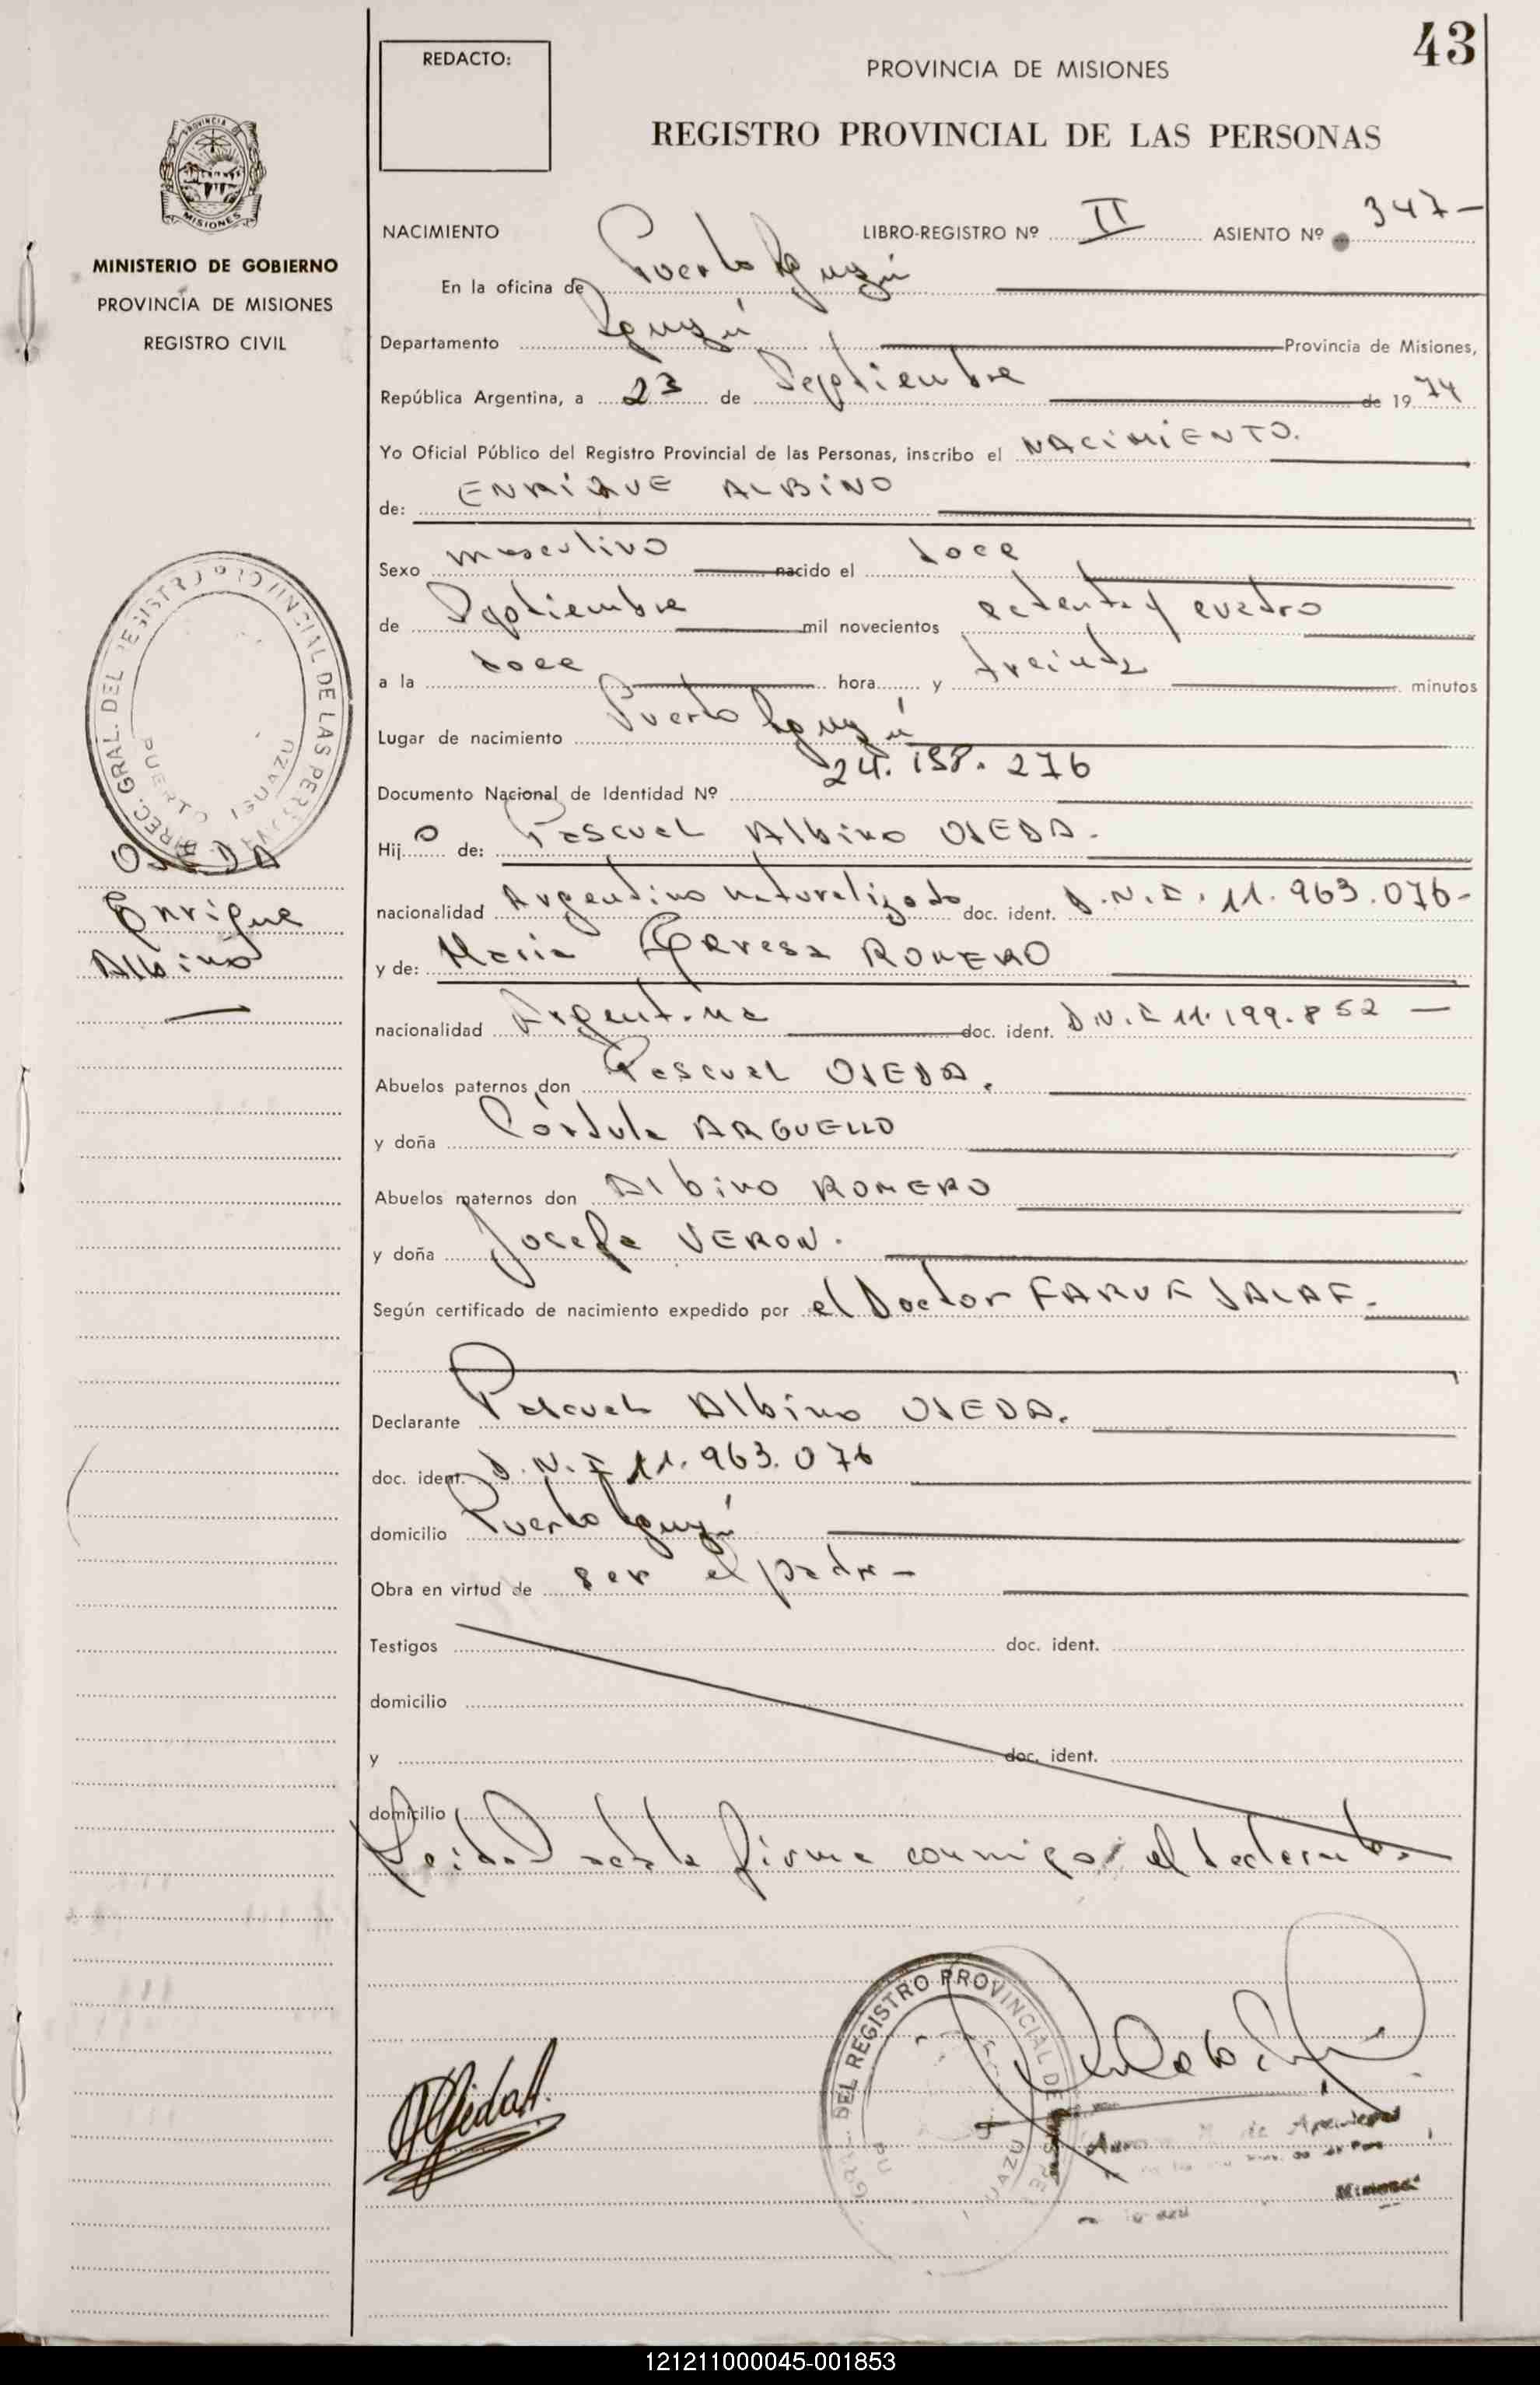 43
REDACTO:
PROVINCIA DE MISIONES
REGISTRO PROVINCIAL DE LAS PERSONAS
PROVINCIA DE
MISIONES
MINISTERIO DE GOBIERNO
PROVINCIA DE MISIONES
REGISTRO CIVIL
NACIMIENTO LIBRO-REGISTRO Nº II ASIENTO Nº 347-
En la oficina de Puerto Iguazú
Departamento Iguazú Provincia de Misiones,
República Argentina, a 23 de Septiembre de 1974
Yo Oficial Público del Registro Provincial de las Personas, inscribo el NACIMIENTO.
de: ENRIQUE ALBINO
Sexo masculino nacido el doce
de Septiembre mil novecientos setenta y cuatro
a la doce hora y treinta minutos
Lugar de nacimiento Puerto Iguazú
Documento Nacional de Identidad Nº 24.158.276
Hijo de: Pascual Albino OJEDA.
nacionalidad Argentino naturalizado doc. ident. D.N.I. 11.963.076-
y de: Maria Teresa ROMERO
nacionalidad Argentina doc. ident. D.N.I 11.199.852 —
Abuelos paternos don Pascual OJEDA.
y doña Córdula ARGUELLO
Abuelos maternos don Albino ROMERO
y doña Josefa VERON.
Según certificado de nacimiento expedido por el Doctor FARUK JALAF.
Declarante Pascual Albino OJEDA.
doc. ident. D.N.I 11.963.076
domicilio Puerto Iguazú
Obra en virtud de ser el padre-
Testigos doc. ident.
domicilio
y doc. ident.
domicilio
Leida el acta la firma conmigo el declarante.
DIREC. GRAL. DEL REGISTRO PROVINCIAL DE LAS PERSONAS
PUERTO IGUAZU
OJEDA
Enrique
Albino
DEL REGISTRO PROVINCIAL DE
Misiones
121211000045-001853